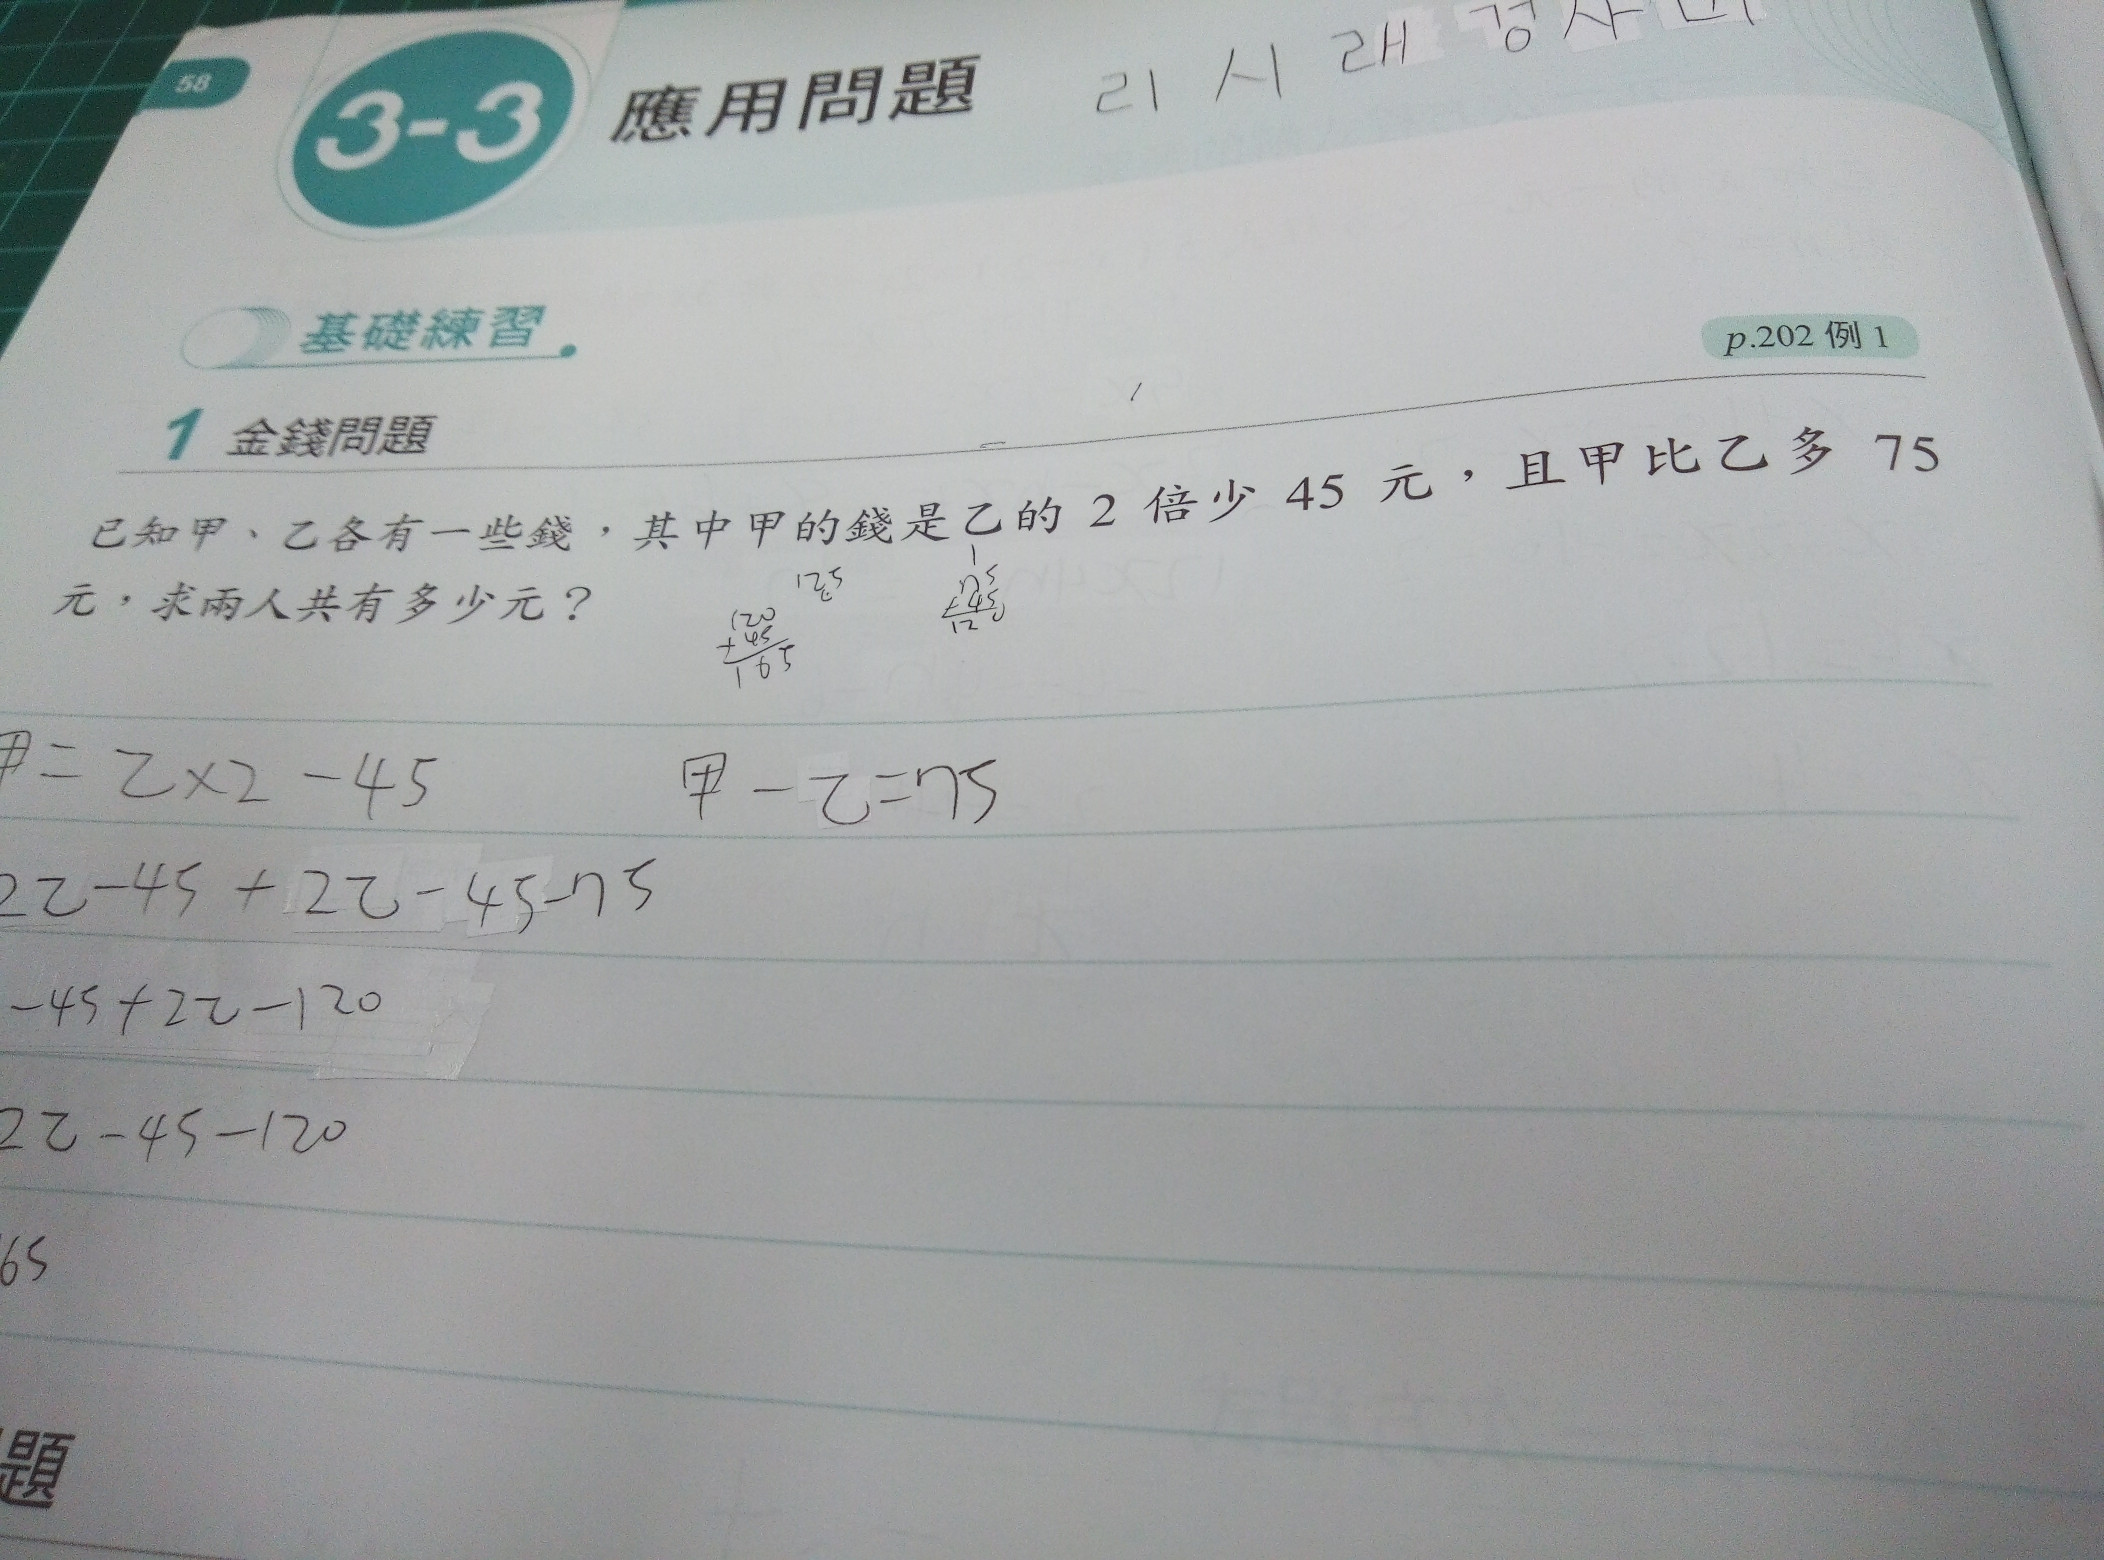 58
3-3 應用問題 리 시 래
基礎練習
p.202 例 1
1 金錢問題
已知甲、乙各有一些錢，其中甲的錢是乙的 2 倍少 45 元，且甲比乙多 75
元，求兩人共有多少元？
125
120
+45
165
甲=乙×2-45 甲-乙=75
2乙-45+2乙-45-75
-45+2乙-120
2乙-45-120
65
題